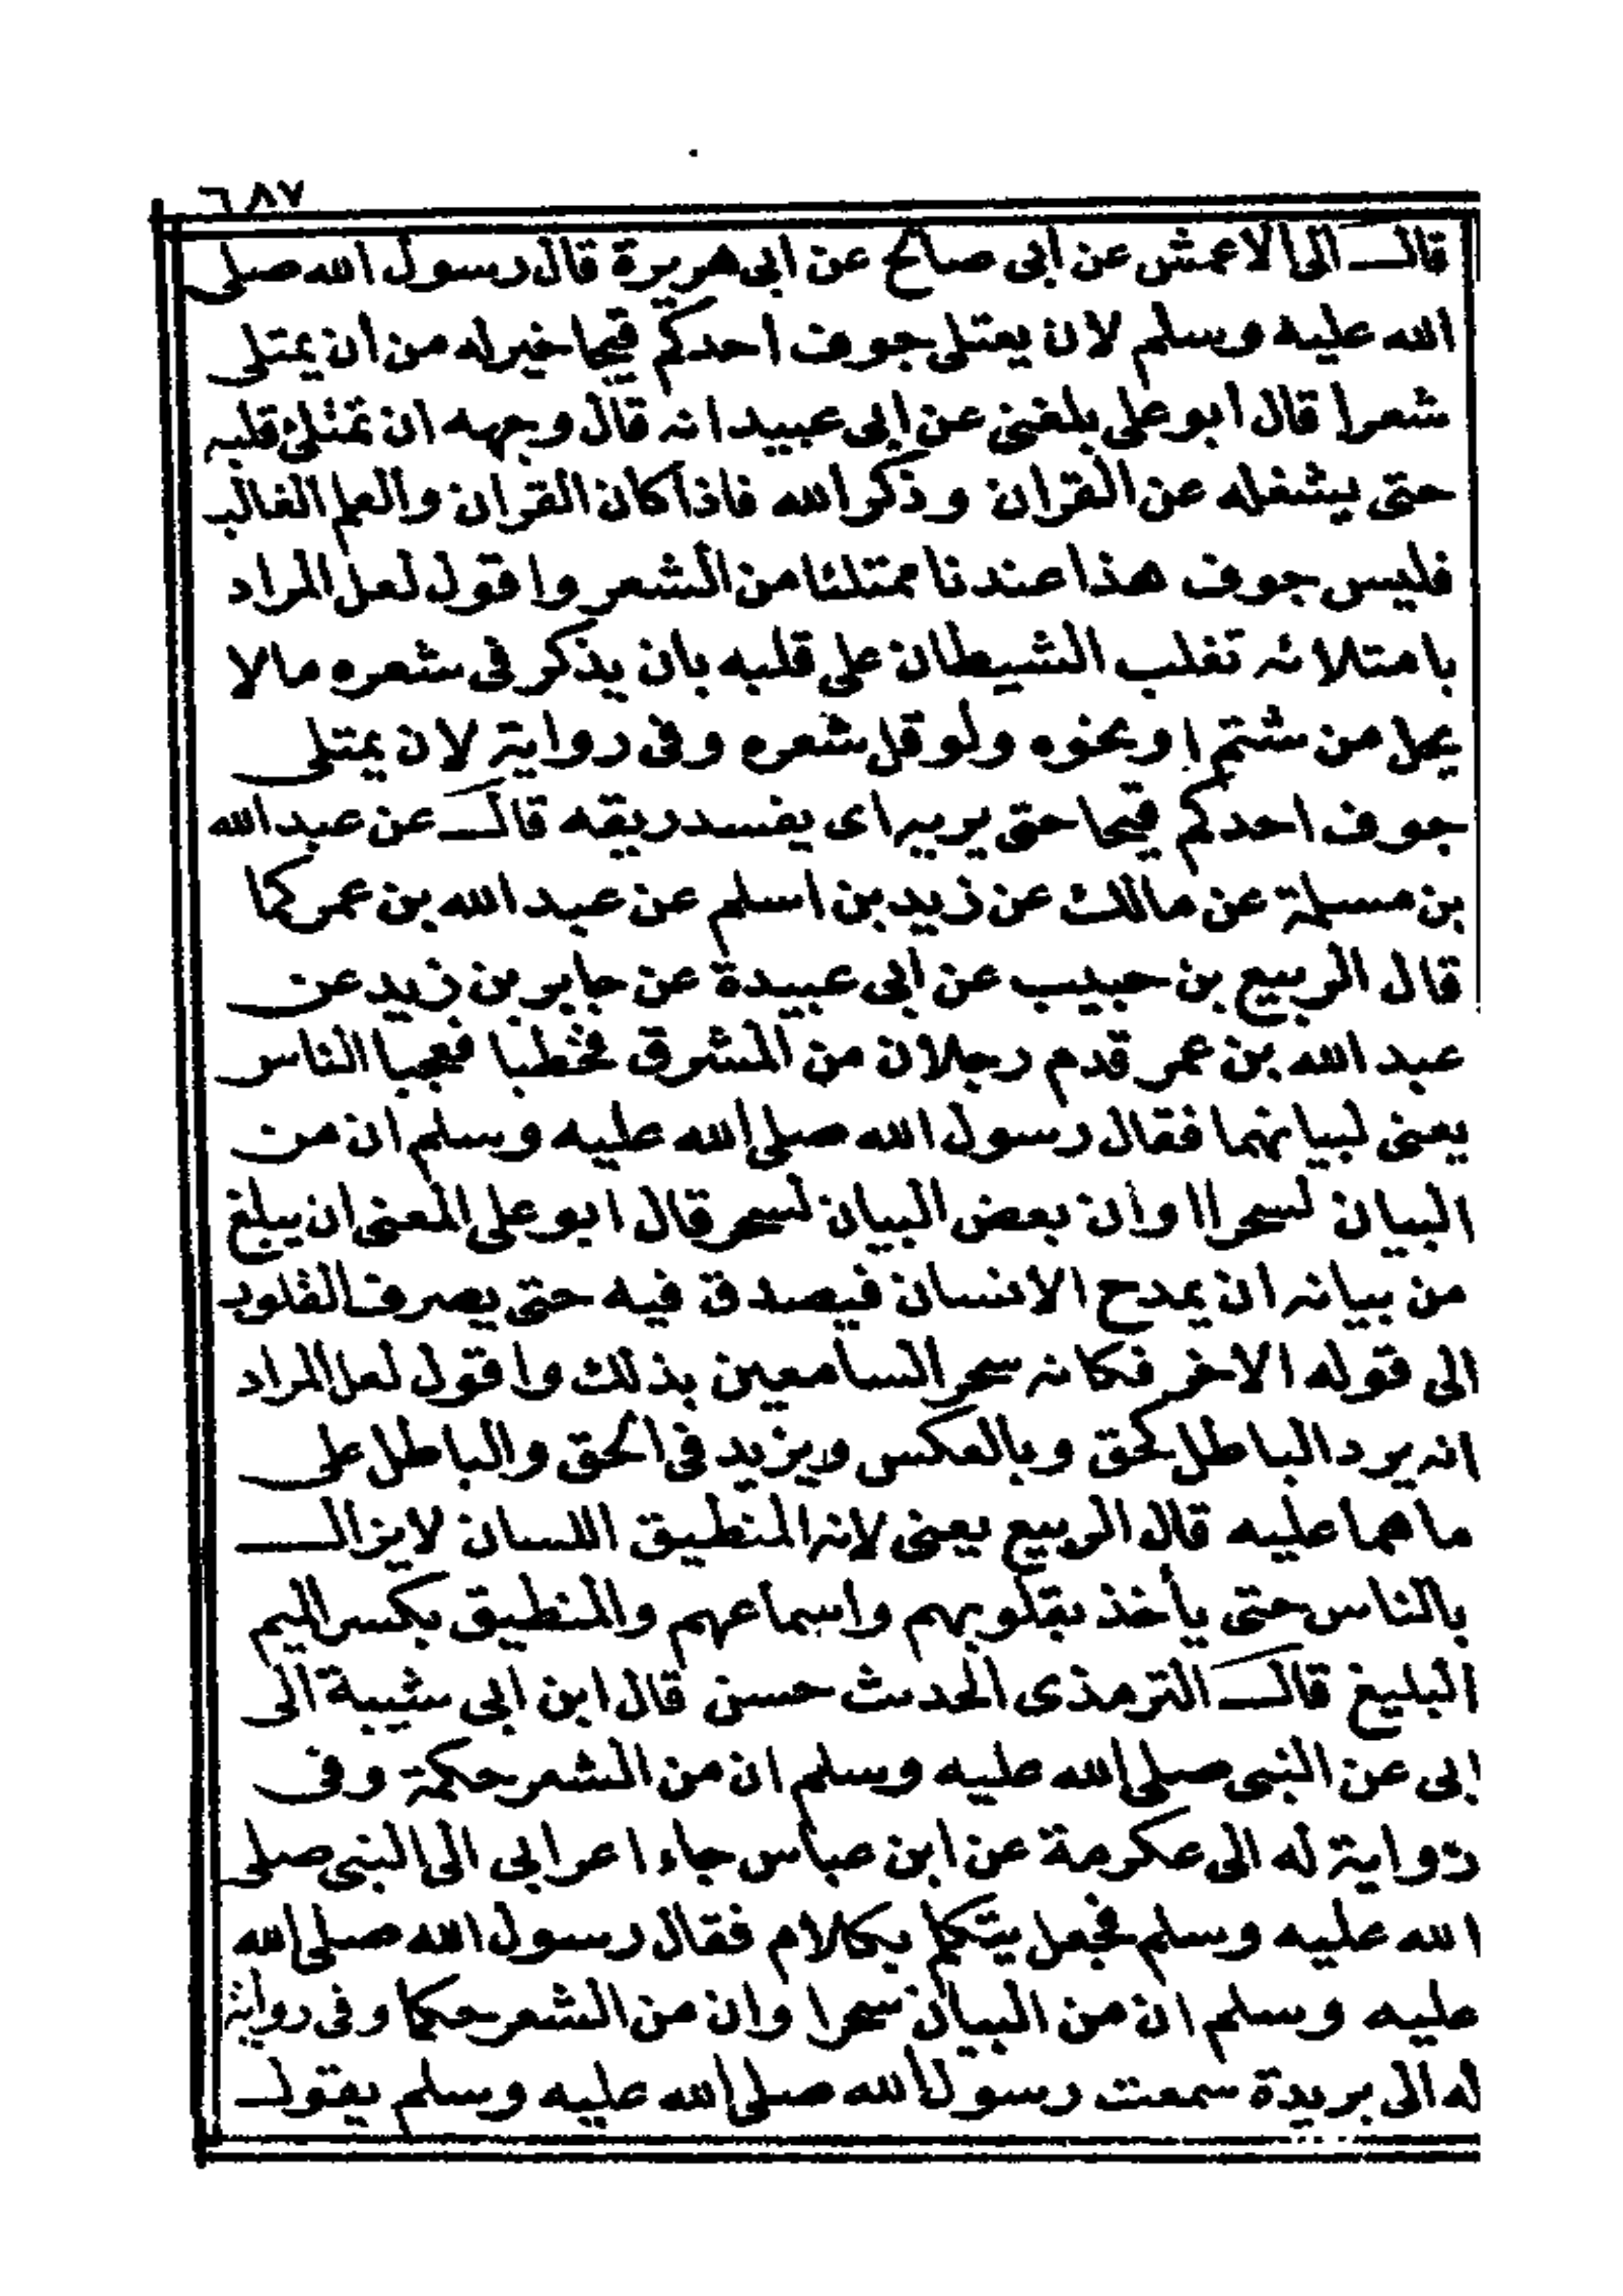 ٦٨٧
قال الى الاعمش عن ابى صالح عن ابى هريرة قال رسول الله صلى
الله عليه وسلم لان يمتلى جوف احدكم قيحا خير له من ان يمتلى
شعرا قال ابو على بلغنى عن ابى عبيد انه قال وجهه ان تمتلئ قلبه
حتى يشغله عن القرآن وذكر الله فاذا كان القرآن والعلم الغالب
فليس جوف هذا عندنا ممتلئا من الشعر واقول لعل المراد
بامتلائه تغلب الشيطان على قلبه بان يذكر فى شعره مالا
يحل من شتم او نحوه ولو قل شعره وفى رواية لان يمتلى
جوف احدكم قيحا حتى يريه اى يفسد ريقه قال عن عبد الله
بن مسلمة عن مالك عن زيد بن اسلم عن عبد الله بن عمر كما
قال الربيع بن حبيب عن ابى عبيدة عن جابر بن زيد عن
عبد الله بن عمر قدم رجلان من المشرق فخطبا فعجبا الناس
يعنى لبيانهما فقال رسول الله صلى الله عليه وسلم ان من
البيان لسحرا اوان بعض البيان لسحر قال ابو على المعنى ان يبلغ
من بيانه ان يمدح الانسان فيصدق فيه حتى يصرف القلوب
الى قوله الاخر فكانه سحر السامعين بذلك واقول لعل المراد
انه يرد الباطل كحق وبالعكس ويزيد فى الحق والباطل على
ما هما عليه قال الربيع يعنى لانه المنطيق اللسان لا يزال
بالناس حتى يأخذ بقلوبهم واسماعهم والمنطيق بكسر الميم
البليغ قال الترمذى الحديث حسن قال ابن ابى شيبة الى
ابى عن النبى صلى الله عليه وسلم ان من الشعر حكمة وفى
رواية له الى عكرمة عن ابن عباس جاء اعرابى الى النبى صلى
الله عليه وسلم فجعل يتكلم بكلام فقال رسول الله صلى الله
عليه وسلم ان من البيان سحرا وان من الشعر حكما وفى رواية
له الى بريدة سمعت رسول الله صلى الله عليه وسلم يقول